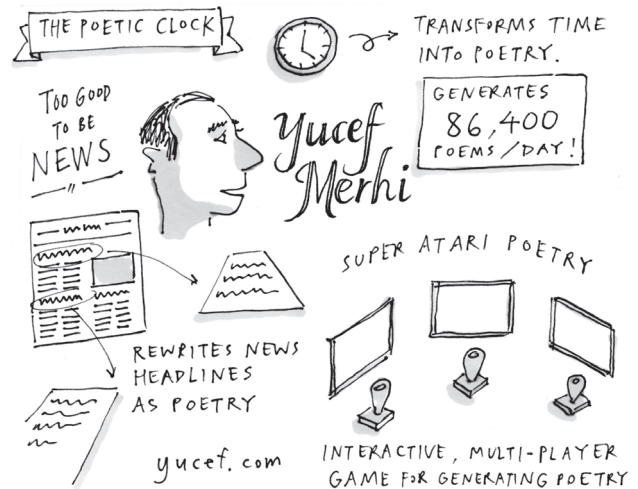 THE POETIC CLOCK
TRANSFORMS TIME
INTO POETRY.
GENERATES
86,400
POEMS/DAY!
TOO GOOD
TO BE
NEWS
Yucef
Merhi
REWRITES NEWS
HEADLINES
AS POETRY
yucef.com
SUPER ATARI POETRY
INTERACTIVE, MULTI-PLAYER
GAME FOR GENERATING POETRY